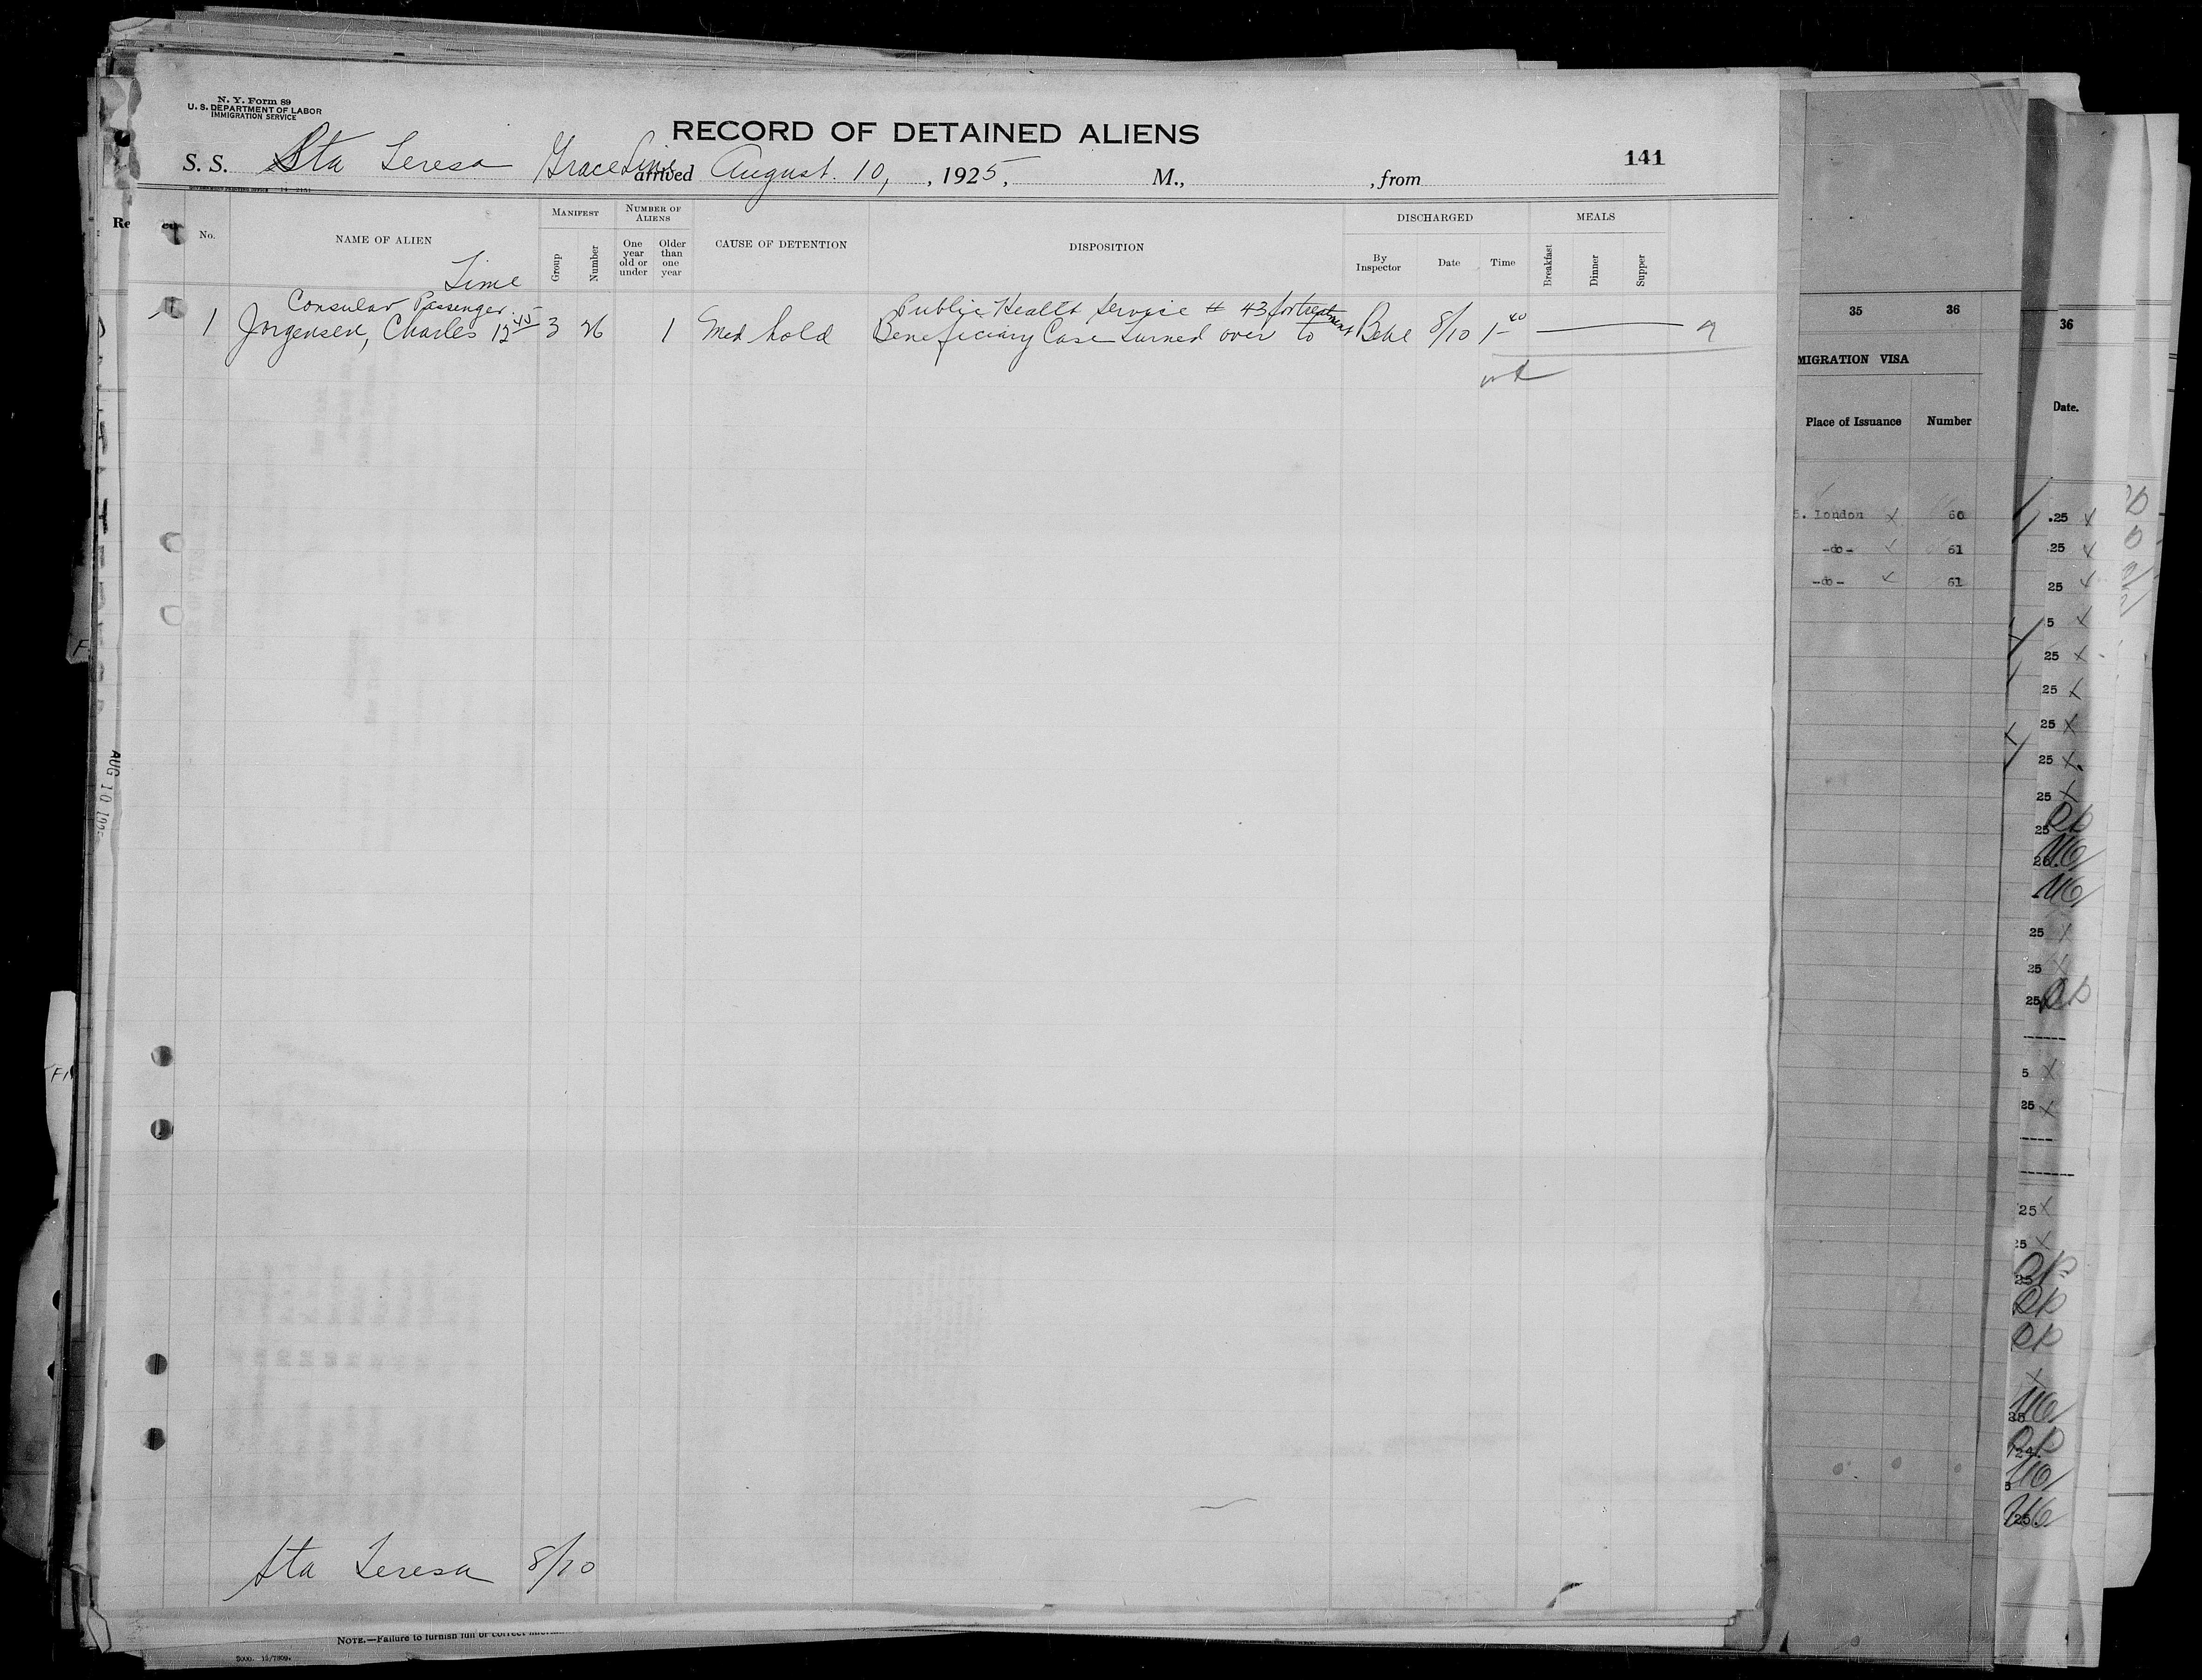 N. Y. Form 89
U. S. DEPARTMENT OF LABOR
IMMIGRATION SERVICE
RECORD OF DETAINED ALIENS
141
S. S. Sta Teresa Grace Line arrived August 10, , 1925, M., , from
No.
NAME OF ALIEN
Time
MANIFEST
Group
Number
NUMBER OF ALIENS
One year old or under
Older than one year
CAUSE OF DETENTION
DISPOSITION
DISCHARGED
By Inspector
Date
Time
MEALS
Breakfast
Dinner
Supper
Consular Passenger Public Health Service # 43 for treatment
1 Jorgensen, Charles 12 45 3 26 1 Med hold Beneficiary Case turned over to 8/10 1 40
Sta Teresa 8/10
AUG 10 192
NOTE.—Failure to furnish full or correct
35 36
MIGRATION VISA
Place of Issuance Number
5. london x 60
-do- x 61
-do- x 61
36
Date.
.25 x
.25 x
25 x
5 x
25 x
25 x
25 x
25 x
25 x
25
25 x
25 x
25
5 x
25 x
25 x
25 x